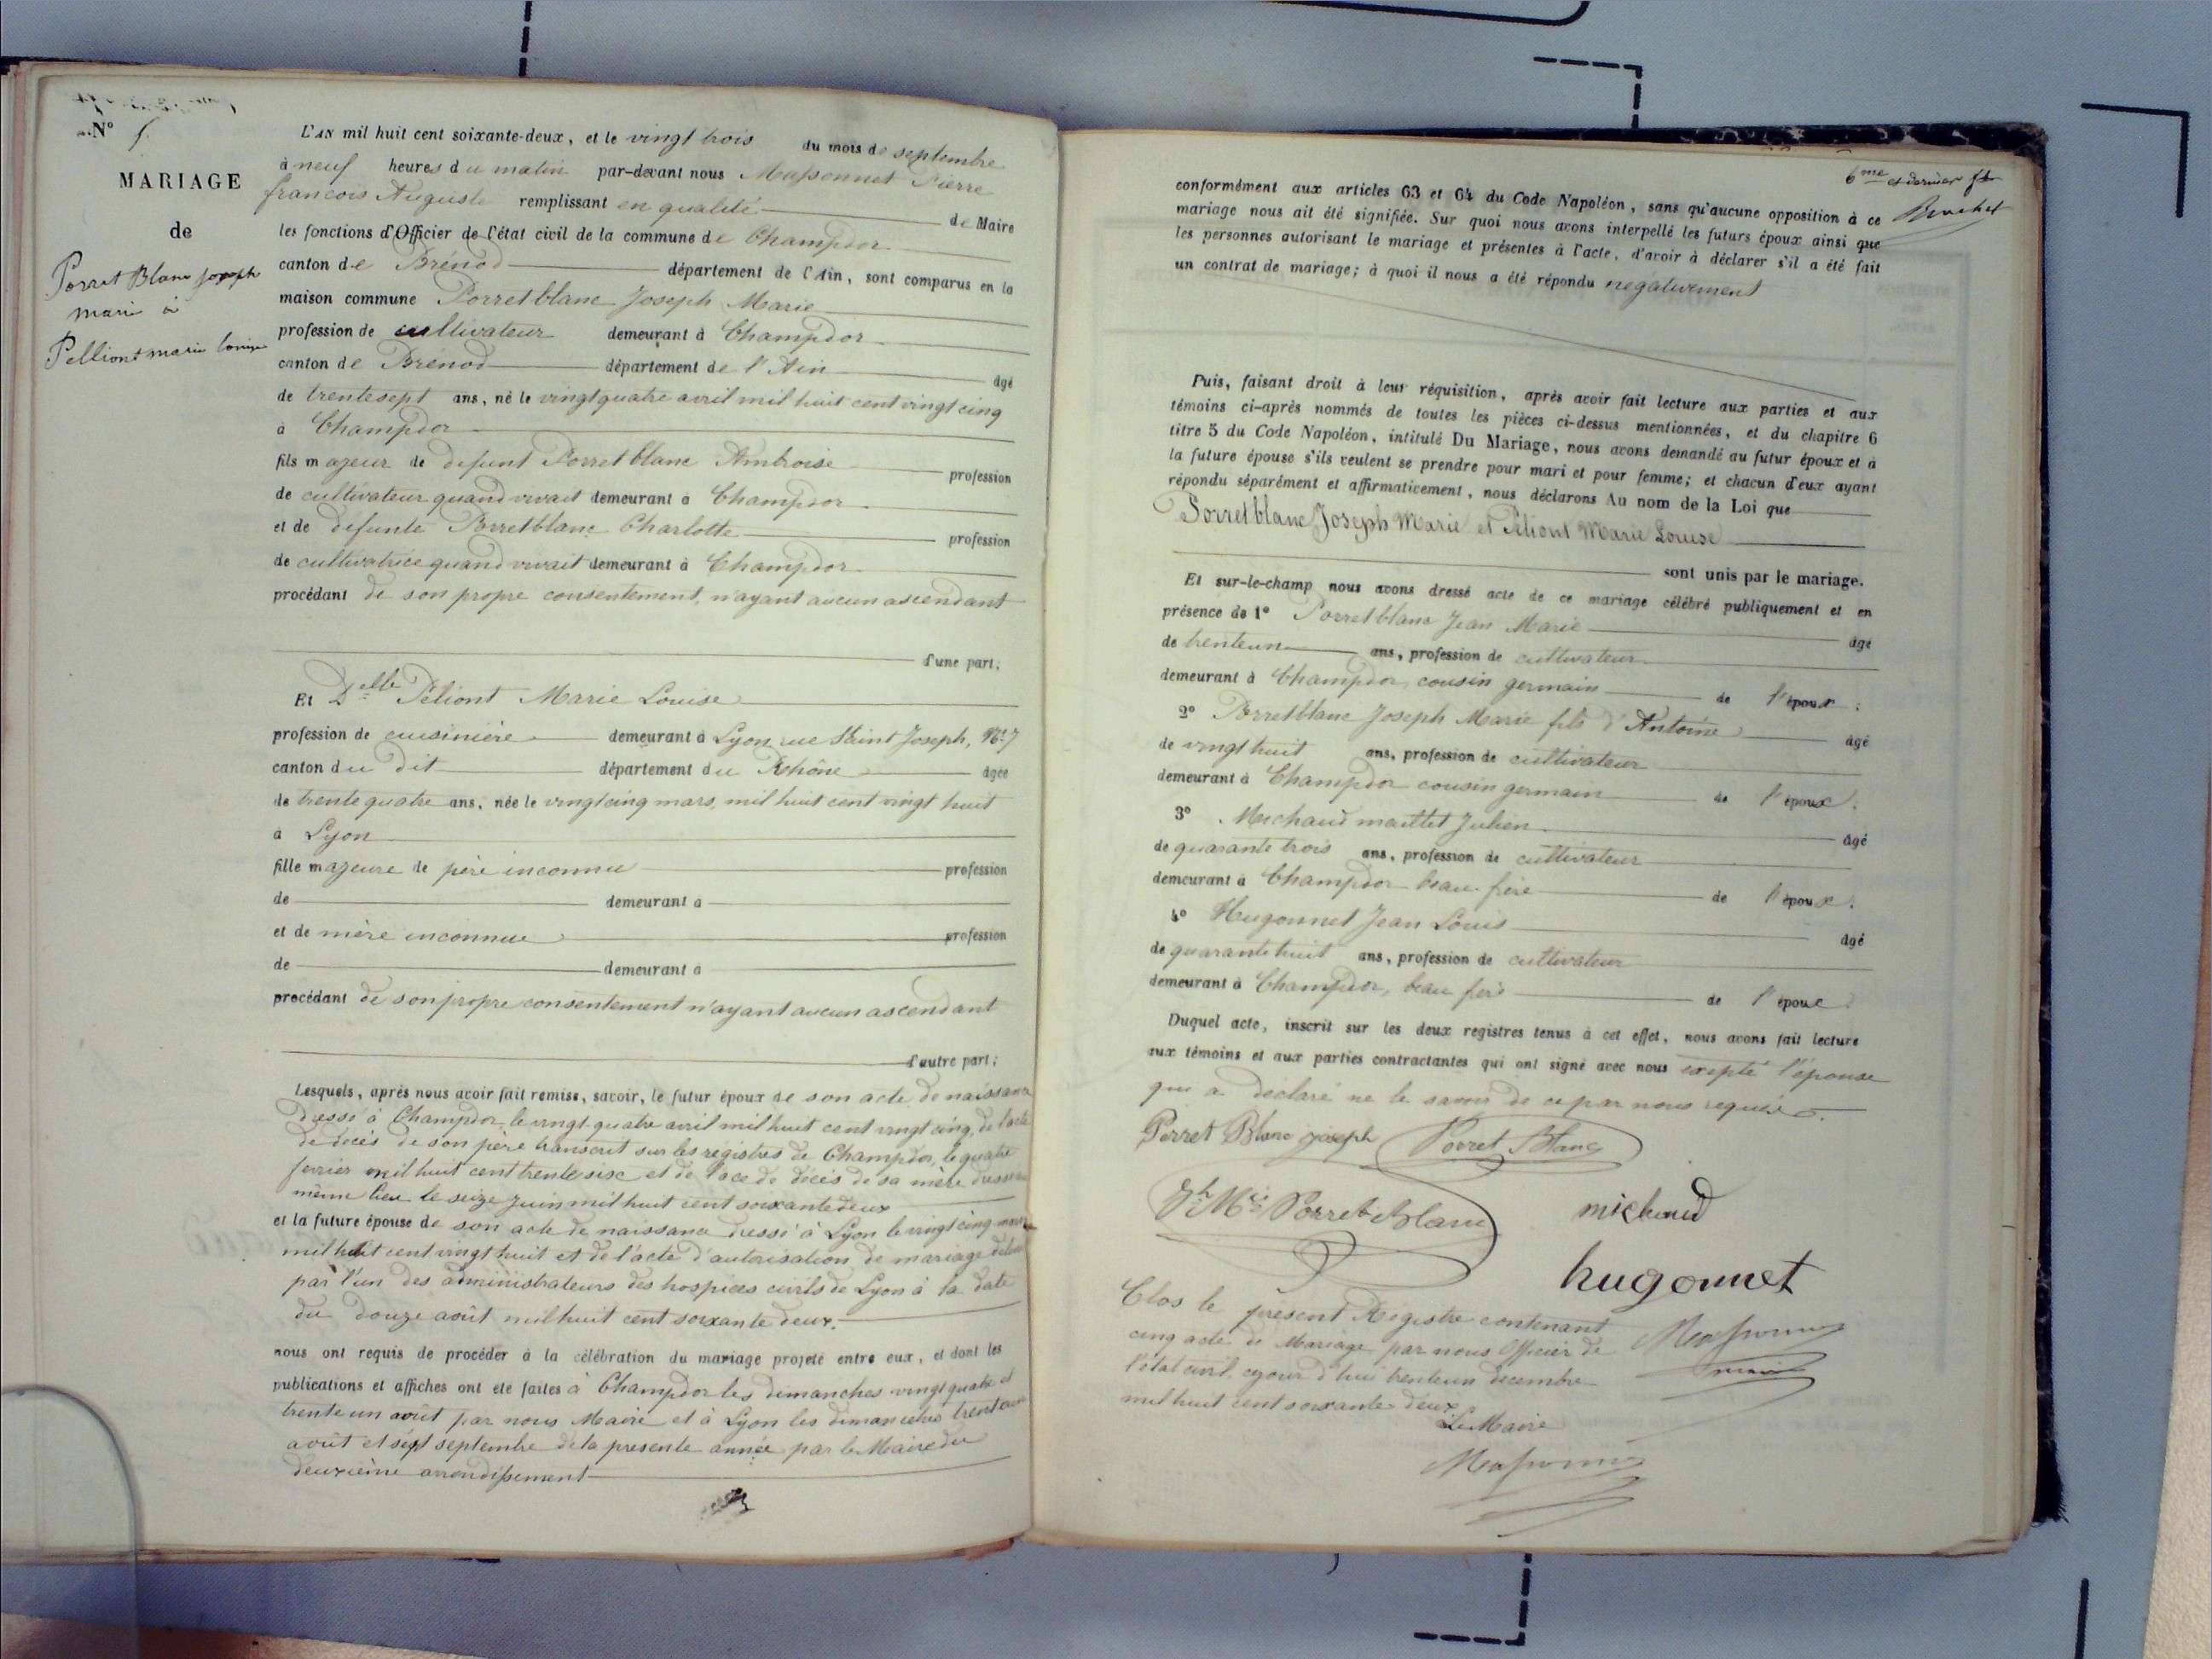 N° 5
MARIAGE
de
Porret Blanc joseph
marié à
Pelliont marie louise
L'AN mil huit cent soixante-deux, et le vingt trois du mois de septembre
à neuf heures du matin par-devant nous Massonnet Pierre
françois Auguste remplissant en qualité de Maire
les fonctions d'Officier de l'état civil de la commune de Champdor
canton de Brénod département de l'Ain, sont comparus en la
maison commune Porretblanc Joseph Marie
profession de cultivateur demeurant à Champdor
canton de Brénod département de l'Ain âgé
de trentesept ans, né le vingtquatre avril mil huit cent vingt cinq
à Champdor
fils majeur de defunt Porretblanc Ambroise profession
de cultivateur quand vivait demeurant à Champdor
et de défunte Porretblanc Charlotte profession
de cultivatrice quand vivait demeurant à Champdor
procédant de son propre consentement, n'ayant aucun ascendant
d'une part;
Et Delle Péliont Marie Louise
profession de cuisinière demeurant à Lyon rue Saint Joseph, N° 7
canton du dit département du Rhône âgée
de trente quatre ans, née le vingtcinq mars, mil huit cent vingt huit
à Lyon
fille majeure de père inconnu profession
de demeurant à
et de mère inconnue profession
de demeurant à
procédant de son propre consentement n'ayant aucun ascendant
d'autre part;
Lesquels, après nous avoir fait remise, savoir, le futur époux de son acte de naissance
dressé à Champdor, le vingt-quatre avril mil huit cent vingt cinq, de l'acte
de décès de son père transcrit sur les registres de Champdor, le quatre
fevrier mil huit cent trente six et de l'ace de décès de sa mère dressé au
même lieu le seize juin mil huit cent soixante deux
et la future épouse de son acte de naissance dressé à Lyon le vingt cinq mars
mil huit cent vingt huit et de l'acte d'autorisation de mariage délivré
par l'un des administrateurs des hospices civils de Lyon à la date
du douze août mil huit cent soixante deux.
nous ont requis de procéder à la célébration du mariage projeté entre eux, et dont les
publications et affiches ont été faites à Champdor les dimanches vingt quatre et
trente un août par nous Maire et à Lyon les dimanches trent un
août et sept septembre de la présente année par le Maire du
deuxième arrondissement
6me et dernier ft
conformément aux articles 63 et 64 du Code Napoléon, sans qu'aucune opposition à ce
mariage nous ait été signifiée. Sur quoi nous avons interpellé les futurs époux ainsi que
les personnes autorisant le mariage et présentes à l'acte, d'avoir à déclarer s'il a été fait
un contrat de mariage; à quoi il nous a été répondu négativement
Puis, faisant droit à leur réquisition, après avoir fait lecture aux parties et aux
témoins ci-après nommés de toutes les pièces ci-dessus mentionnées, et du chapitre 6
titre 5 du Code Napoléon, intitulé Du Mariage, nous avons demandé au futur époux et à
la future épouse s'ils veulent se prendre pour mari et pour femme; et chacun d'eux ayant
répondu séparément et affirmativement, nous déclarons Au nom de la Loi que
Porretblanc Joseph Marie et Péliont Marie Louise
sont unis par le mariage.
Et sur-le-champ nous avons dressé acte de ce mariage célébré publiquement et en
présence de 1° Porretblanc Jean Marie âgé
de trenteun ans, profession de cultivateur
demeurant à Champdor, cousin germain de l'époux;
2° Porretblanc Joseph Marie fils d'Antoine âgé
de vingt huit ans, profession de cultivateur
demeurant à Champdor cousin germain de l'époux.
3° Michaud maillet Julien âgé
de quarante trois ans, profession de cultivateur
demeurant à Champdor beau-frère de l'époux.
4° Hugonnet Jean Louis âgé
de quarante huit ans, profession de cultivateur
demeurant à Champdor, beau frère de l'époux
Duquel acte, inscrit sur les deux registres tenus à cet effet, nous avons fait lecture
aux témoins et aux parties contractantes qui ont signé avec nous excepté l'épouse
qui a déclaré ne le savoir de ce par nous requise.
Porret Blanc joseph Porret Blanc
Jh Mie Porret Blanc michaud
hugonnet
Clos le présent Régistre contenant
cinq acte de Mariage par nous Officier de
l'état civil, cejour d'hui trenteun décembre
mil huit cent soixante deux
Massonnet
maire
Le Maire
Massonnet